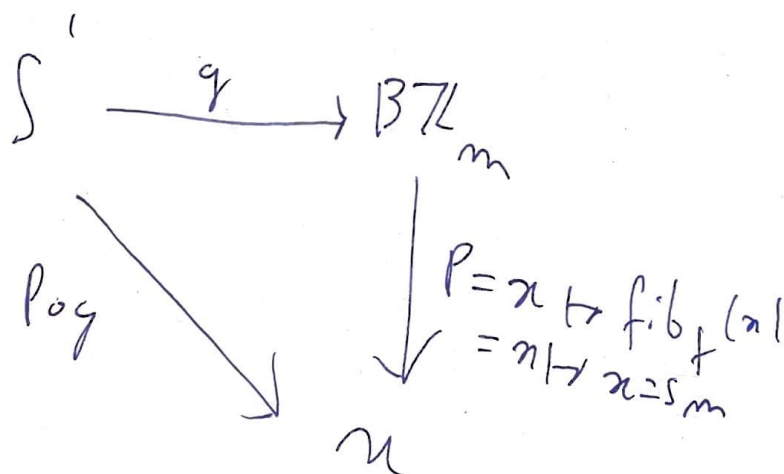 S¹ g Bℤₘ
P∘g P = x ↦ fib_f(x)
= x ↦ x = sₘ
𝒰